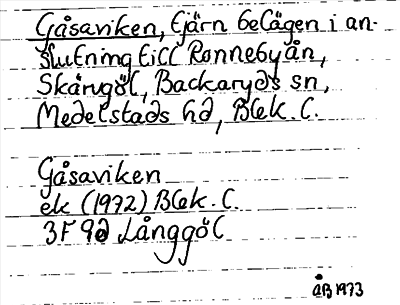 Gåsaviken, tjärn belägen i an-
slutning till Ronnebyån,
Skårugöl, Backaryds sn,
Medelstads hd, Blek. l.
Gåsaviken
ek (1972) Blek. l.
3F 9d Långgöl
ÅB 1973